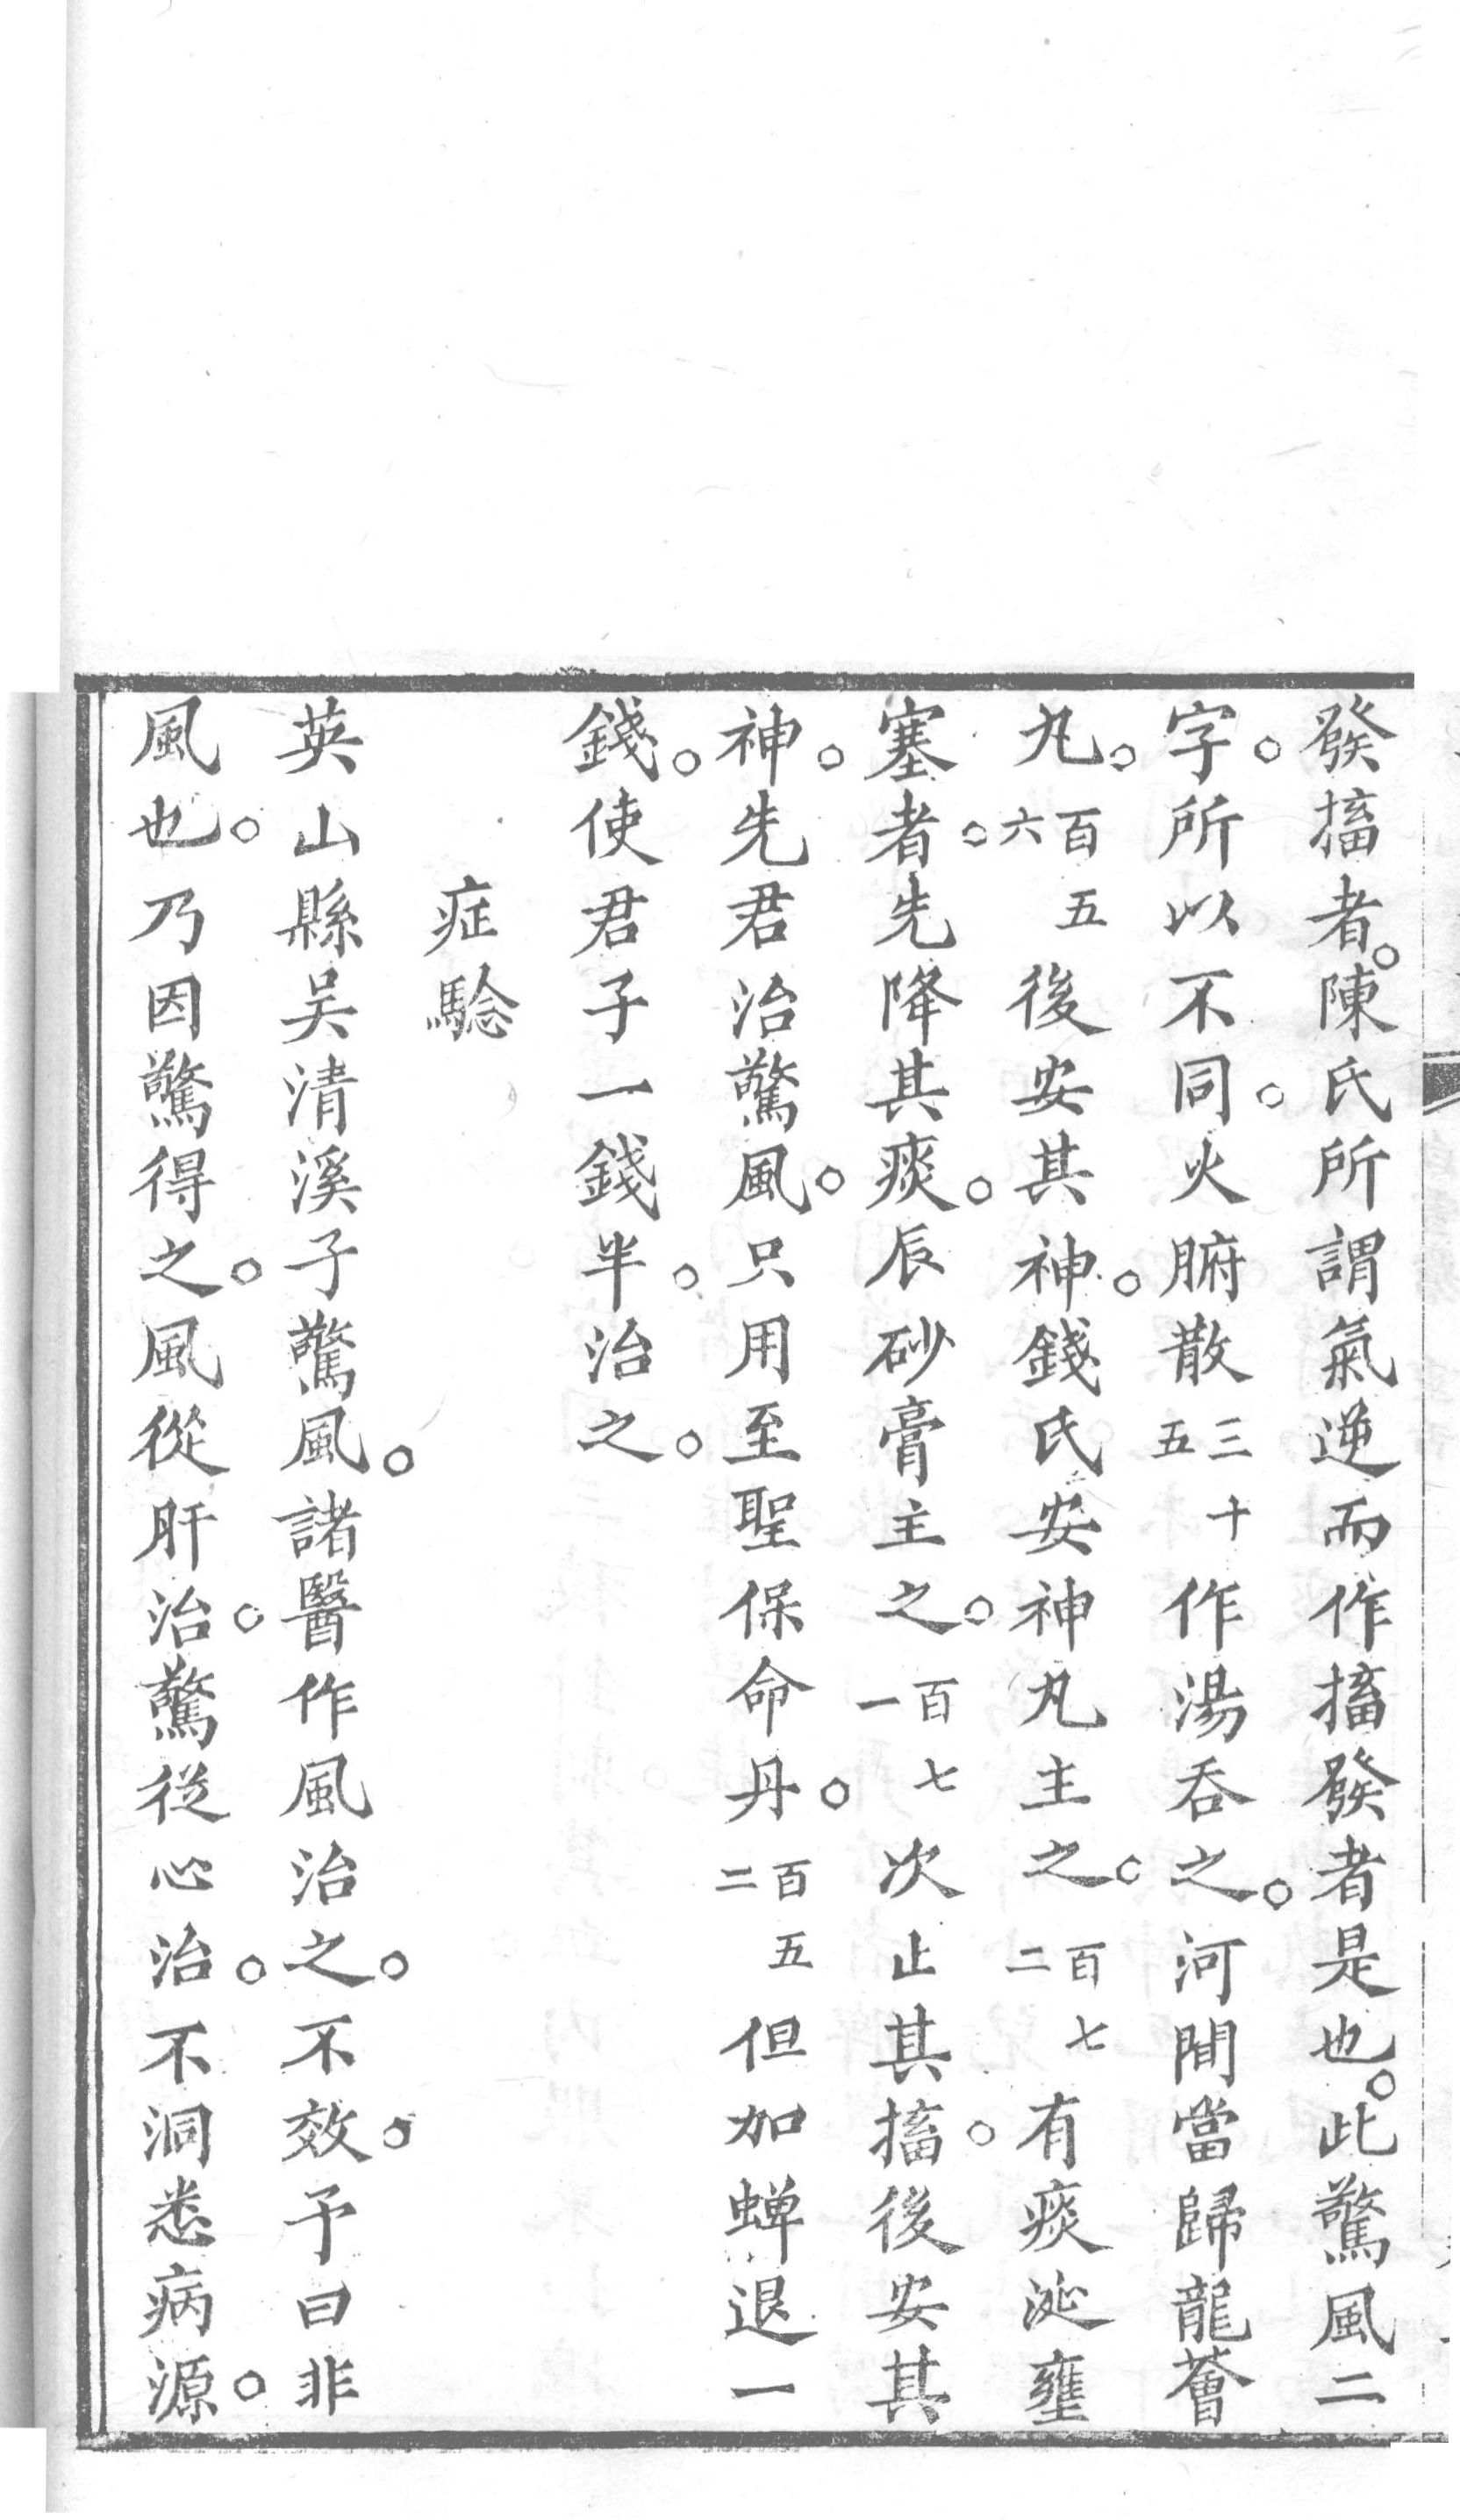 發搐者。陳氏所謂氣逆而作搐發者是也。此驚風二
字。所以不同。火腑散三十五作湯吞之。河間當歸龍薈
丸。百五六後安其神。錢氏安神丸主之。百七二有痰涎壅
塞者。先降其痰。辰砂膏主之。百七一次止其搐。後安其
神。先君治驚風。只用至聖保命丹。百五二但加蟬退一
錢。使君子一錢半。治之。
症騐
英山縣吴清溪子驚風。諸醫作風治之。不效。予曰非
風也。乃因驚得之。風從肝治。驚從心治。不洞悉病源。